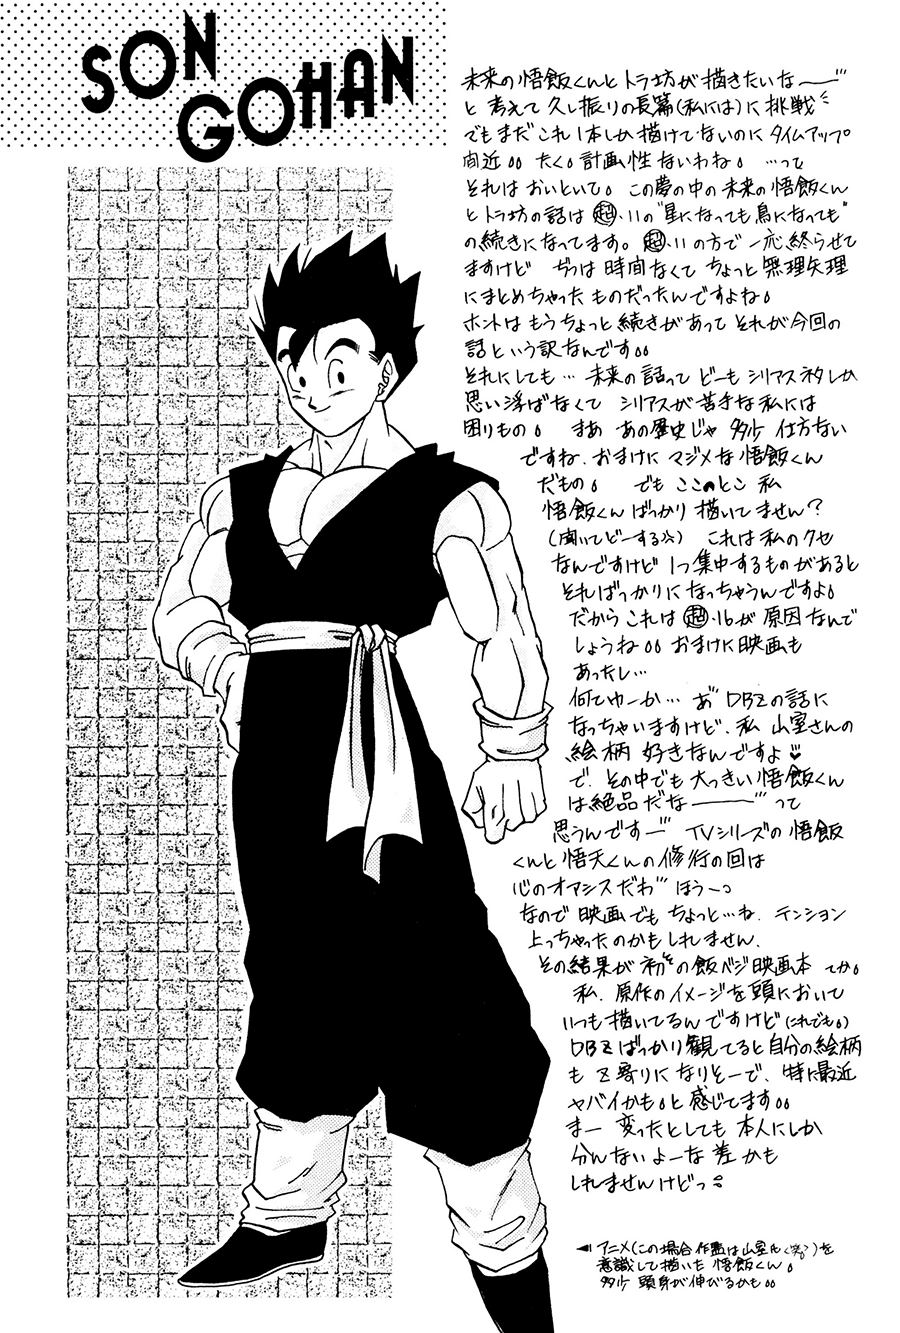 SON
GOHAN
未来の悟飯くんとトラ坊が描きたいなー
と考えて久し振りの長篇(私には)に挑戦
でもまだこれ1本しか描けてないのにタイムアップ
間近。。たく。計画性ないわね。…って
それはおいといて。この夢の中の未来の悟飯くん
とトラ坊の話は超・11の"星になっても鳥になっても"
の続きになってます。超・11の方で一応、終らせて
ますけど じつは時間なくてちょっと無理矢理
にまとめちゃったものだったんですよね。
ホントはもうちょっと続きがあってそれが今回の
話という訳なんです。。
それにしても…未来の話ってどーもシリアスネタしか
思い浮ばなくて シリアスが苦手な私には
困りもの。 まあ あの歴史じゃ多少仕方ない
ですね、おまけにマジメな悟飯くん
だもの。 でも ここんとこ 私
悟飯くんばっかり描いてません?
(聞いてどーする) これは私のクセ
なんですけど 1つ集中するものがあると
そればっかりになっちゃうんですよ。
だからこれは超・16が原因なんで
しょうね。。おまけに映画も
あったし…
何てゆーか… DBZの話に
なっちゃいますけど、私 山室さんの
絵柄 好きなんですよ♥
で、その中でも大っきい悟飯くん
は絶品だなーって
思うんですー TVシリーズの悟飯
くんと悟天くんの修行の回は
心のオアシスだわ ほうーっ
なので映画でもちょっと…ね、テンション
上っちゃったのかもしれません、
その結果が初の飯ベジ映画本 てか。
私、原作のイメージを頭において
いつも描いてるんですけど(これでも。)
DBZばっかり観てると自分の絵柄
もZ寄りになりそーで、特に最近
ヤバイかも。と感じてます。。
まー 変ったとしても本人にしか
分んないよーな差かも
しれませんけどっ
◀アニメ(この場合作監は山室氏(笑))を
意識して描いた悟飯くん。
多少 頭身が伸びるかも。。